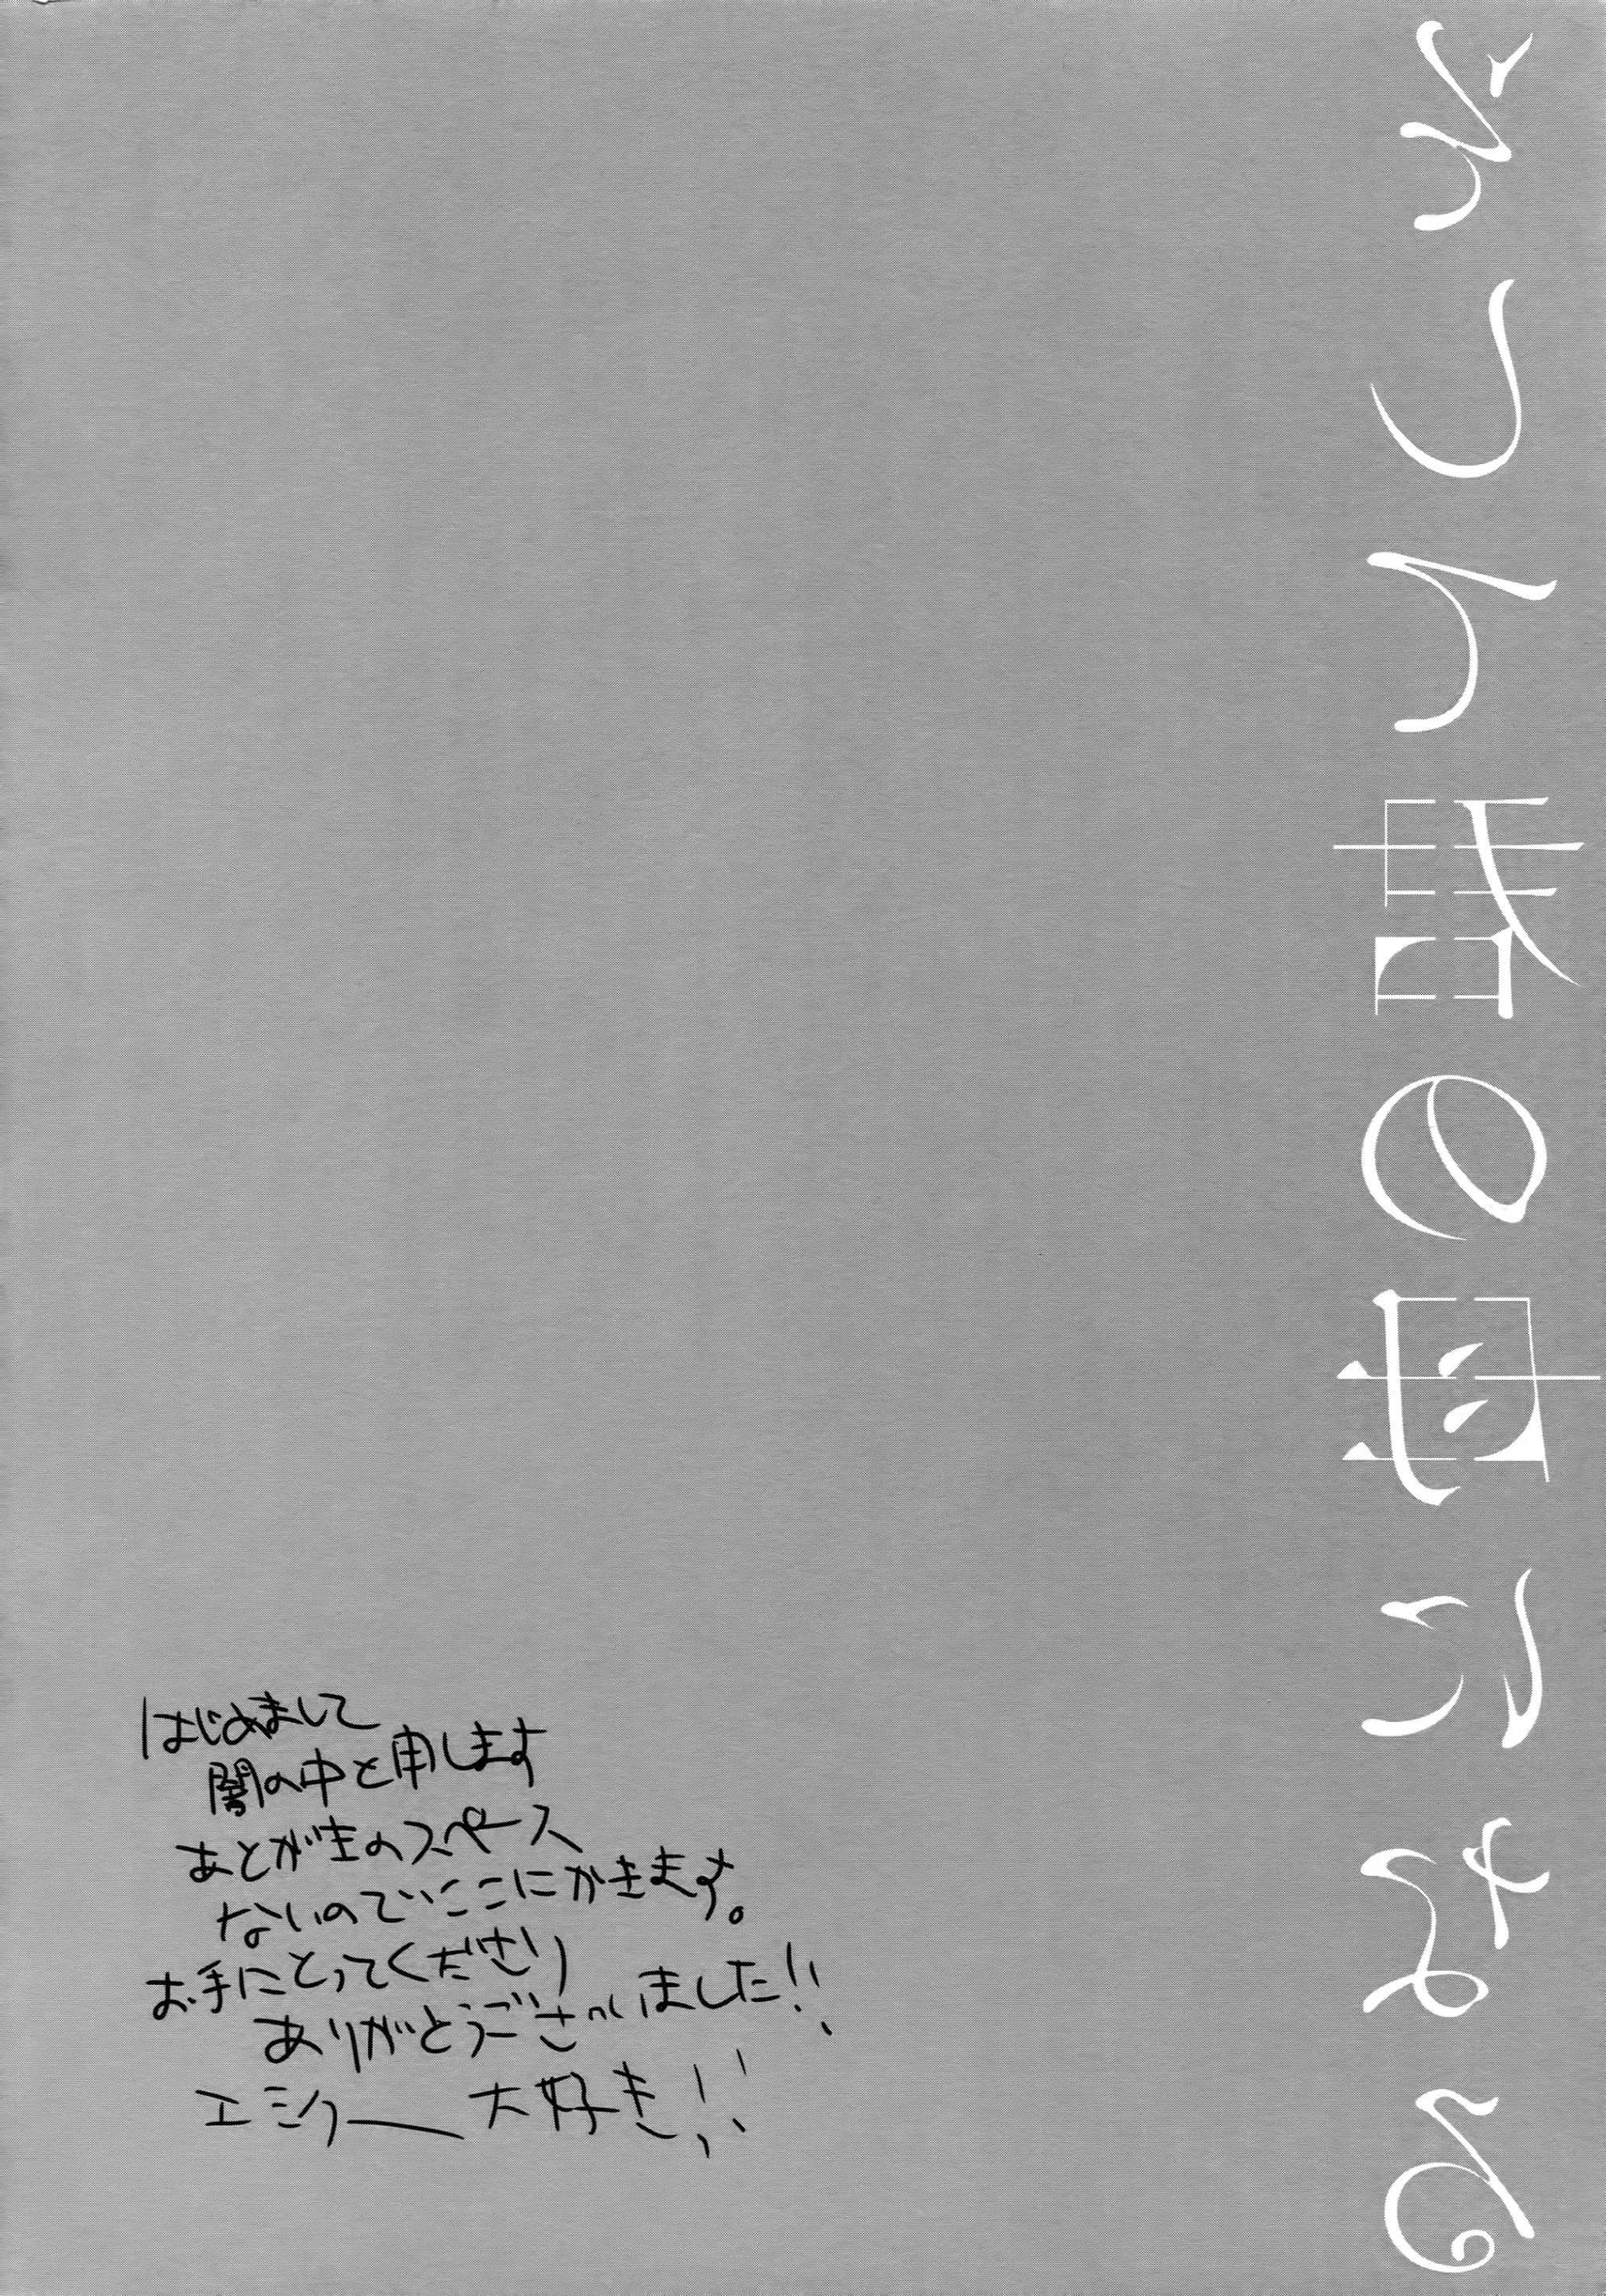 君の母になる
はじめまして
闇の中と申します
あとがきのスペース
ないのでここにかきます。
お手にとってくださり
ありがとうございました!!
大好き!!